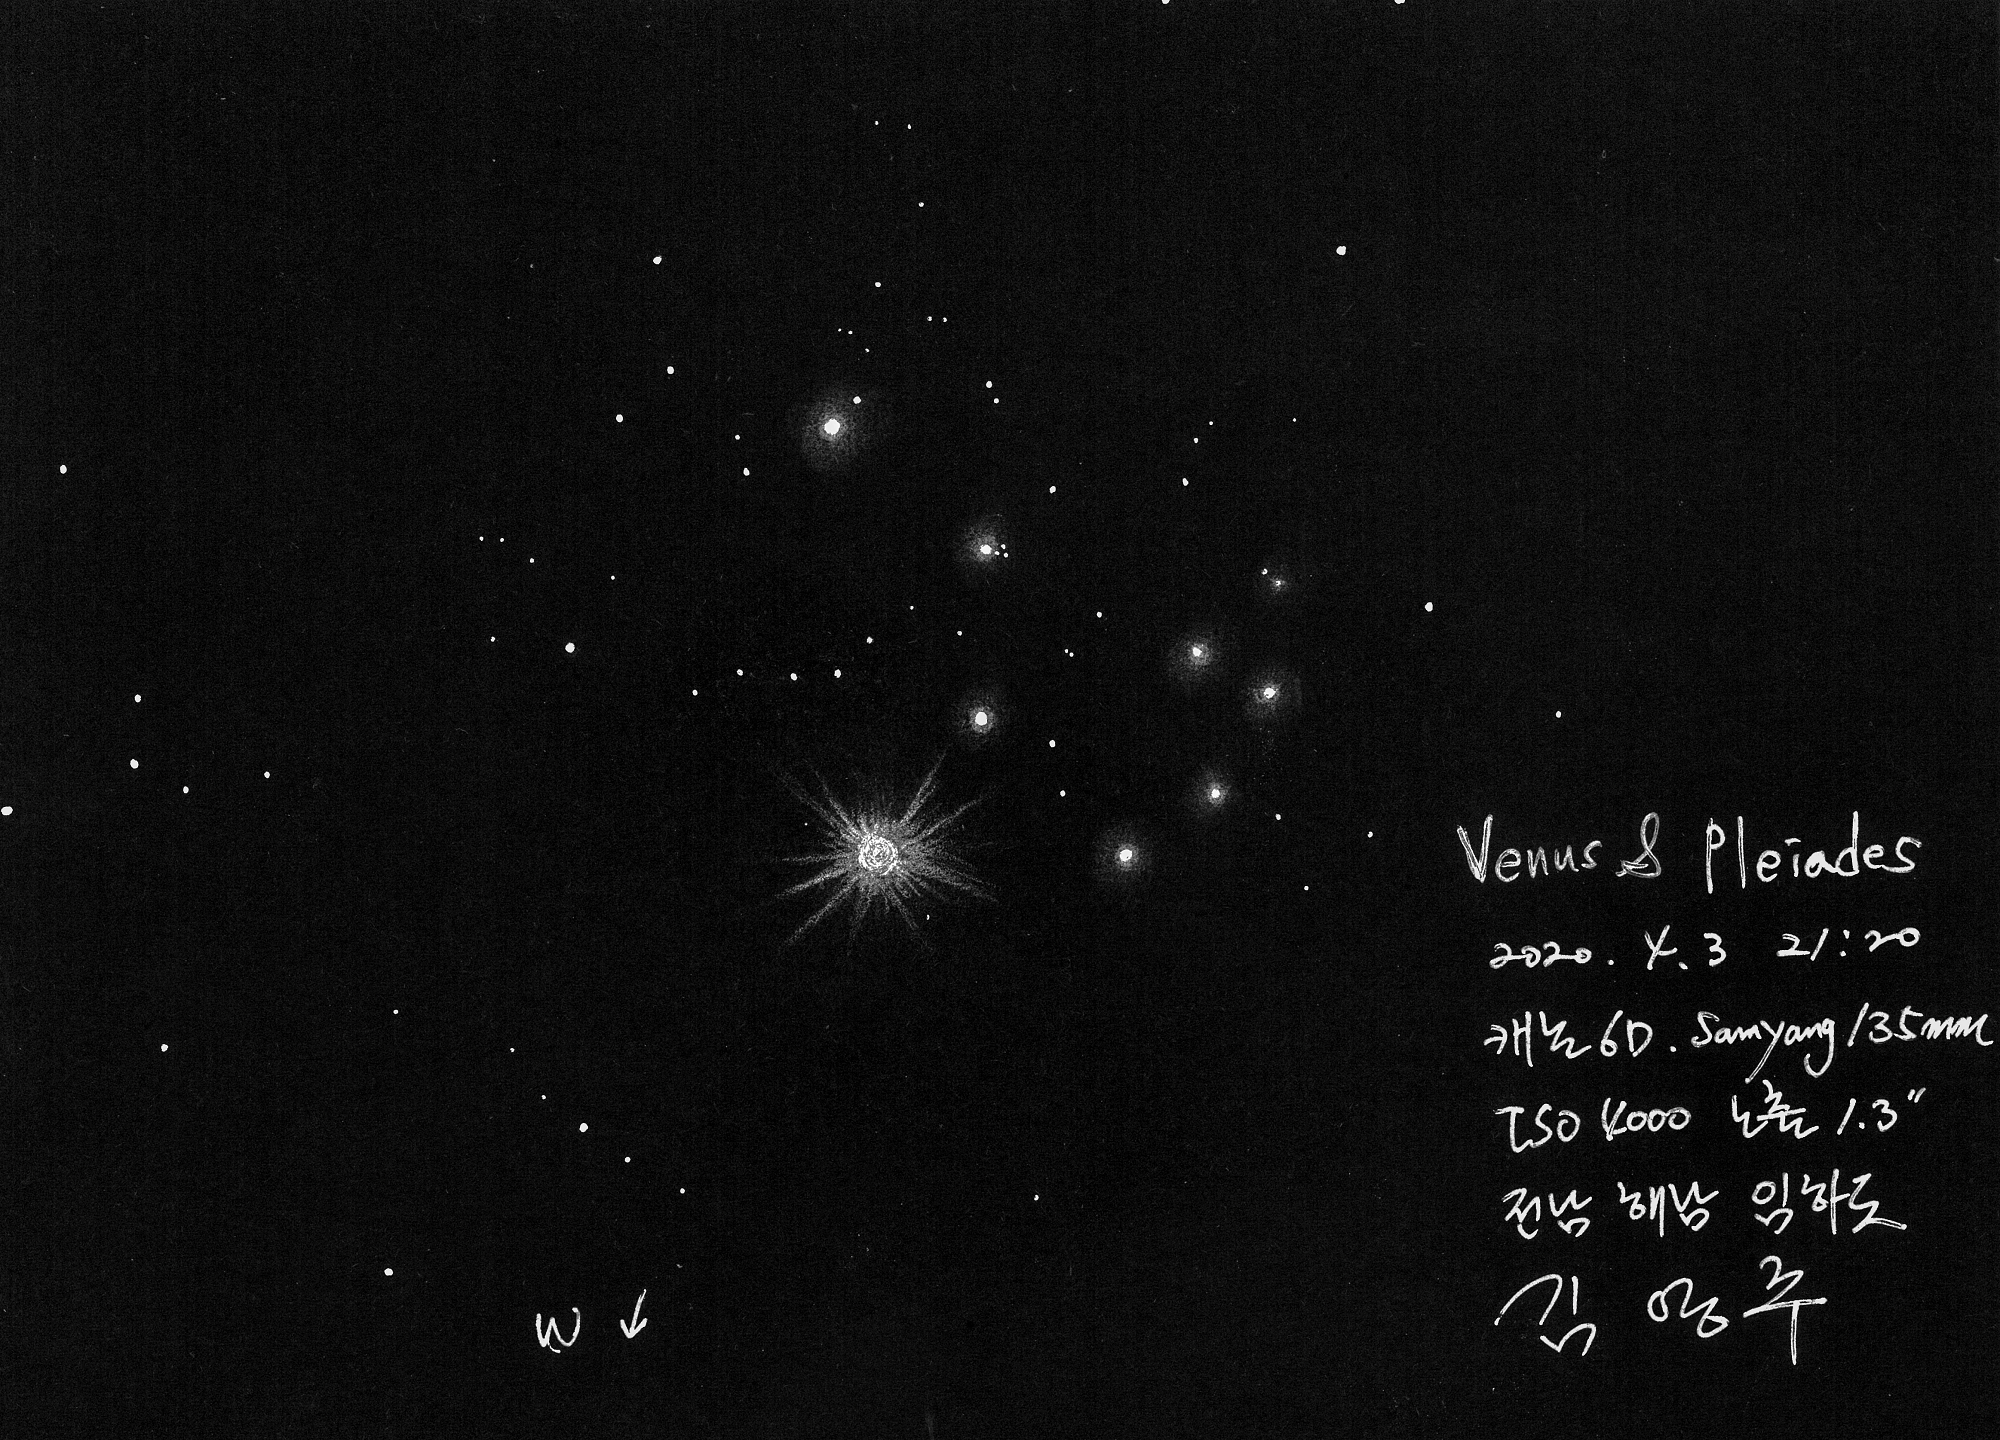 Venus & Pleiades
2020. 4. 3 21:20
캐논 6D. Samyang 135mm
ISO 4000 노출 1.3"
전남 해남 임하도
김 영 주
W ↓